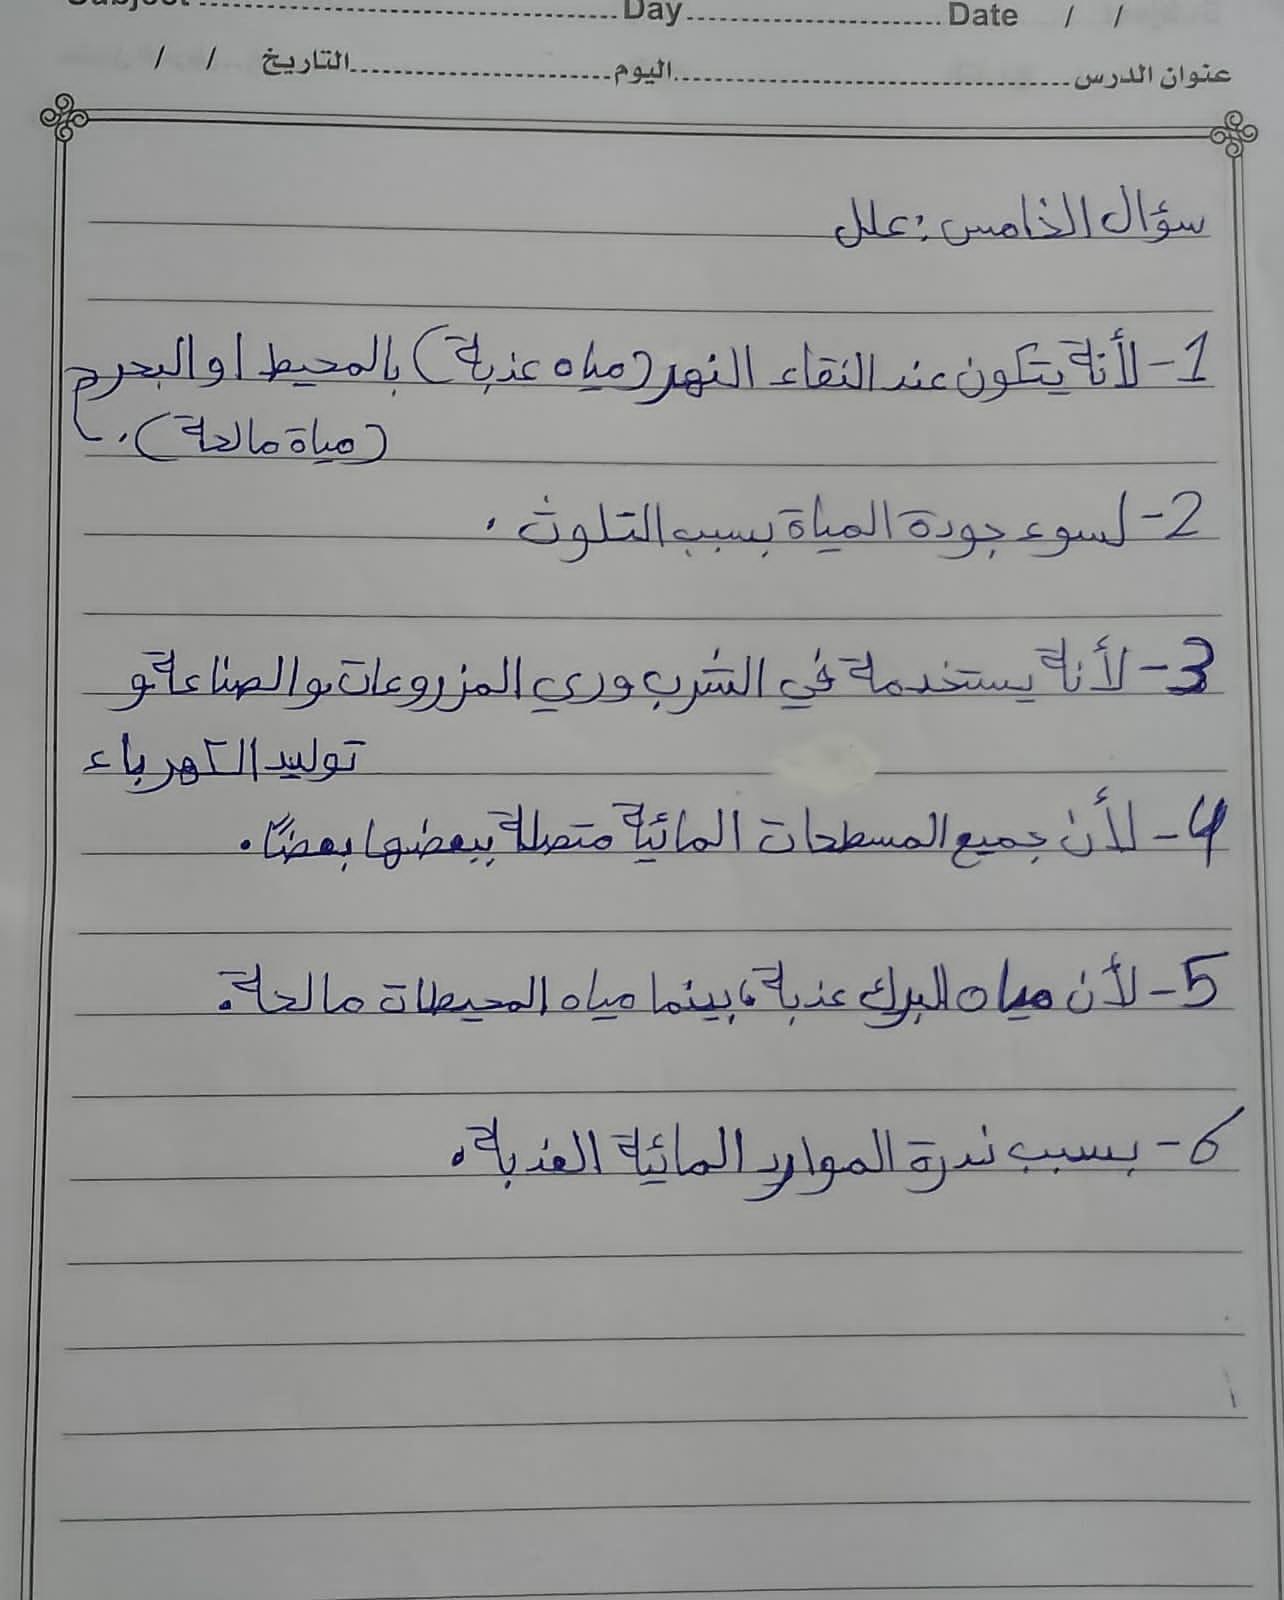 Subject ........ Day ........ Date / /
عنوان الدرس ........ اليوم ........ التاريخ / /
سؤال الخامس : علل
1- لأنة يتكون عند التقاء النهر (مياه عذبة) بالمحيط او البحر
(مياة مالحة).
2- لسوء جودة المياة بسبب التلوث .
3- لأنة يستخدمة في الشرب وري المزروعات والصناعة و
توليد الكهرباء
4- لأن جميع المسطحات المائية متصلة ببعضها بعضًا.
5- لأن مياه البرك عذبة، بينما مياه المحيطات مالحة.
6- بسبب ندرة الموارد المائية العذبة.